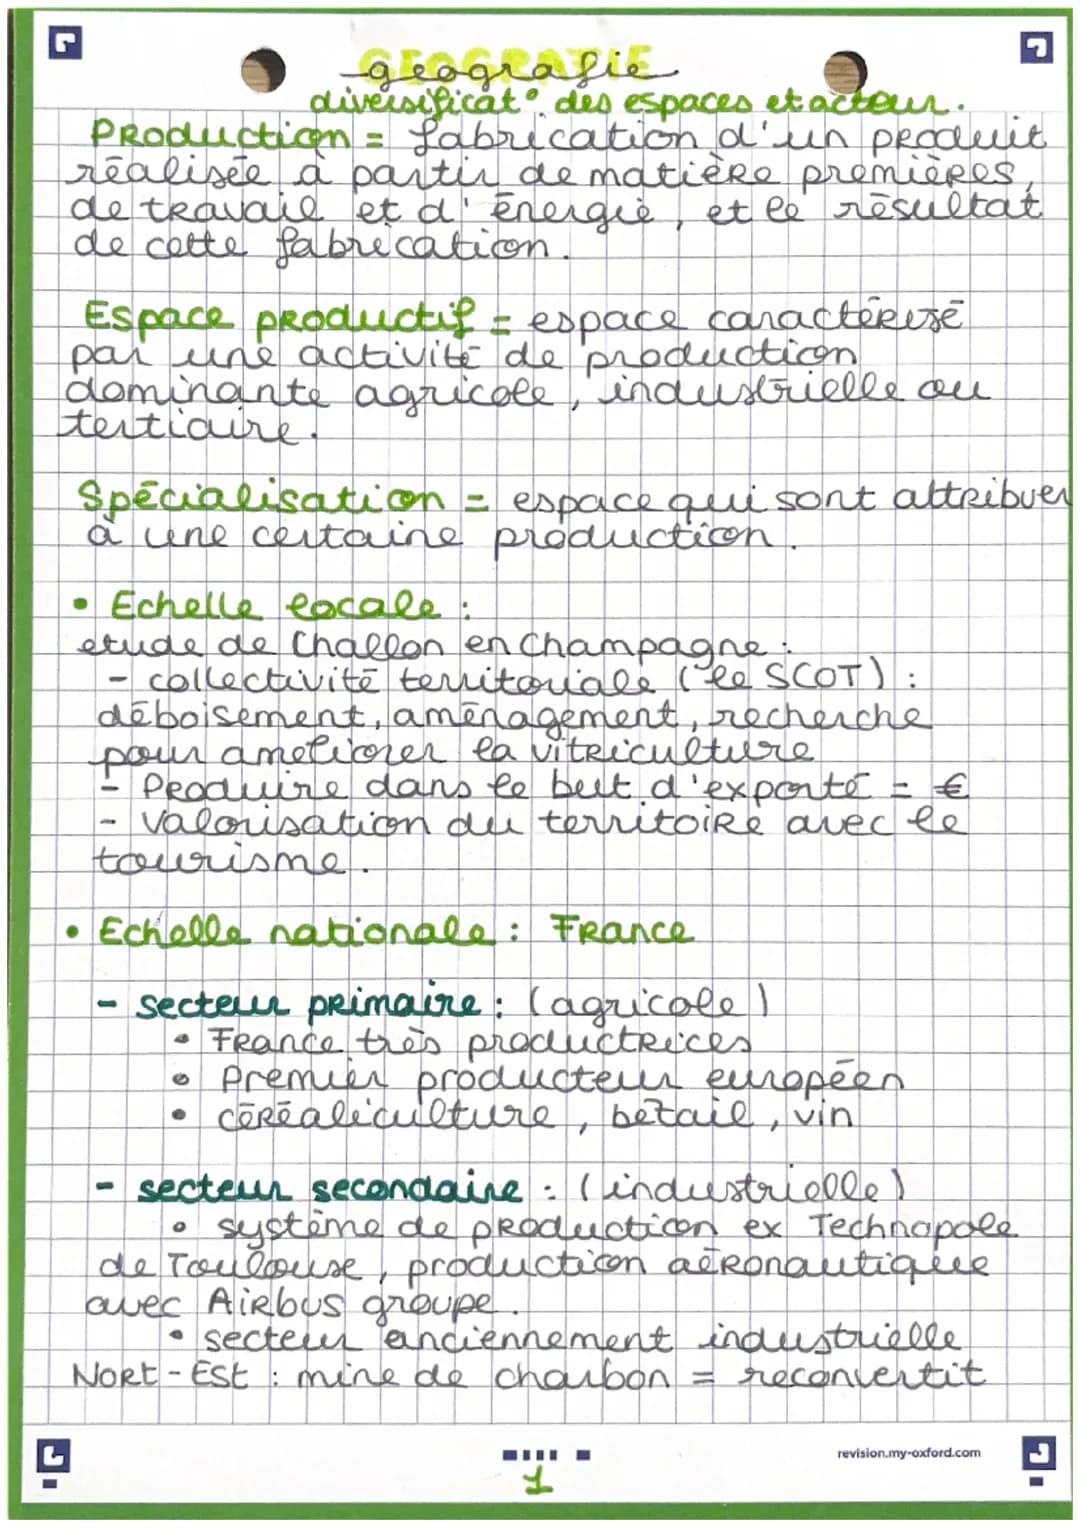 GEOGRAFIE
geografie
diversificat° des espaces et acteur.
Production = fabrication d'un produit
réalisée à partir de matière premières,
de travail et d'énergie, et le résultat
de cette fabrication.
Espace productif = espace caractérisé
par une activité de production
dominante agricole, industrielle ou
tertiaire.
Spécialisation = espace qui sont attribuer
à une certaine production.
• Echelle locale :
etude de Challon en Champagne :
- collectivité territoriale (le SCOT) :
déboisement, aménagement, recherche
pour ameliorer la vitriculture
- Produire dans le but d'exporté = €
- Valorisation du territoire avec le
tourisme.
• Echelle nationale : France
- secteur primaire : (agricole)
• France très productrices
• Premier producteur européen
• céréaliculture, bétail, vin
- secteur secondaire : (industrielle)
• système de production ex Technopole
de Toulouse, production aéronautique
avec Airbus groupe.
• secteur anciennement industrielle
Nort-Est : mine de charbon = reconvertit
revision.my-oxford.com
1